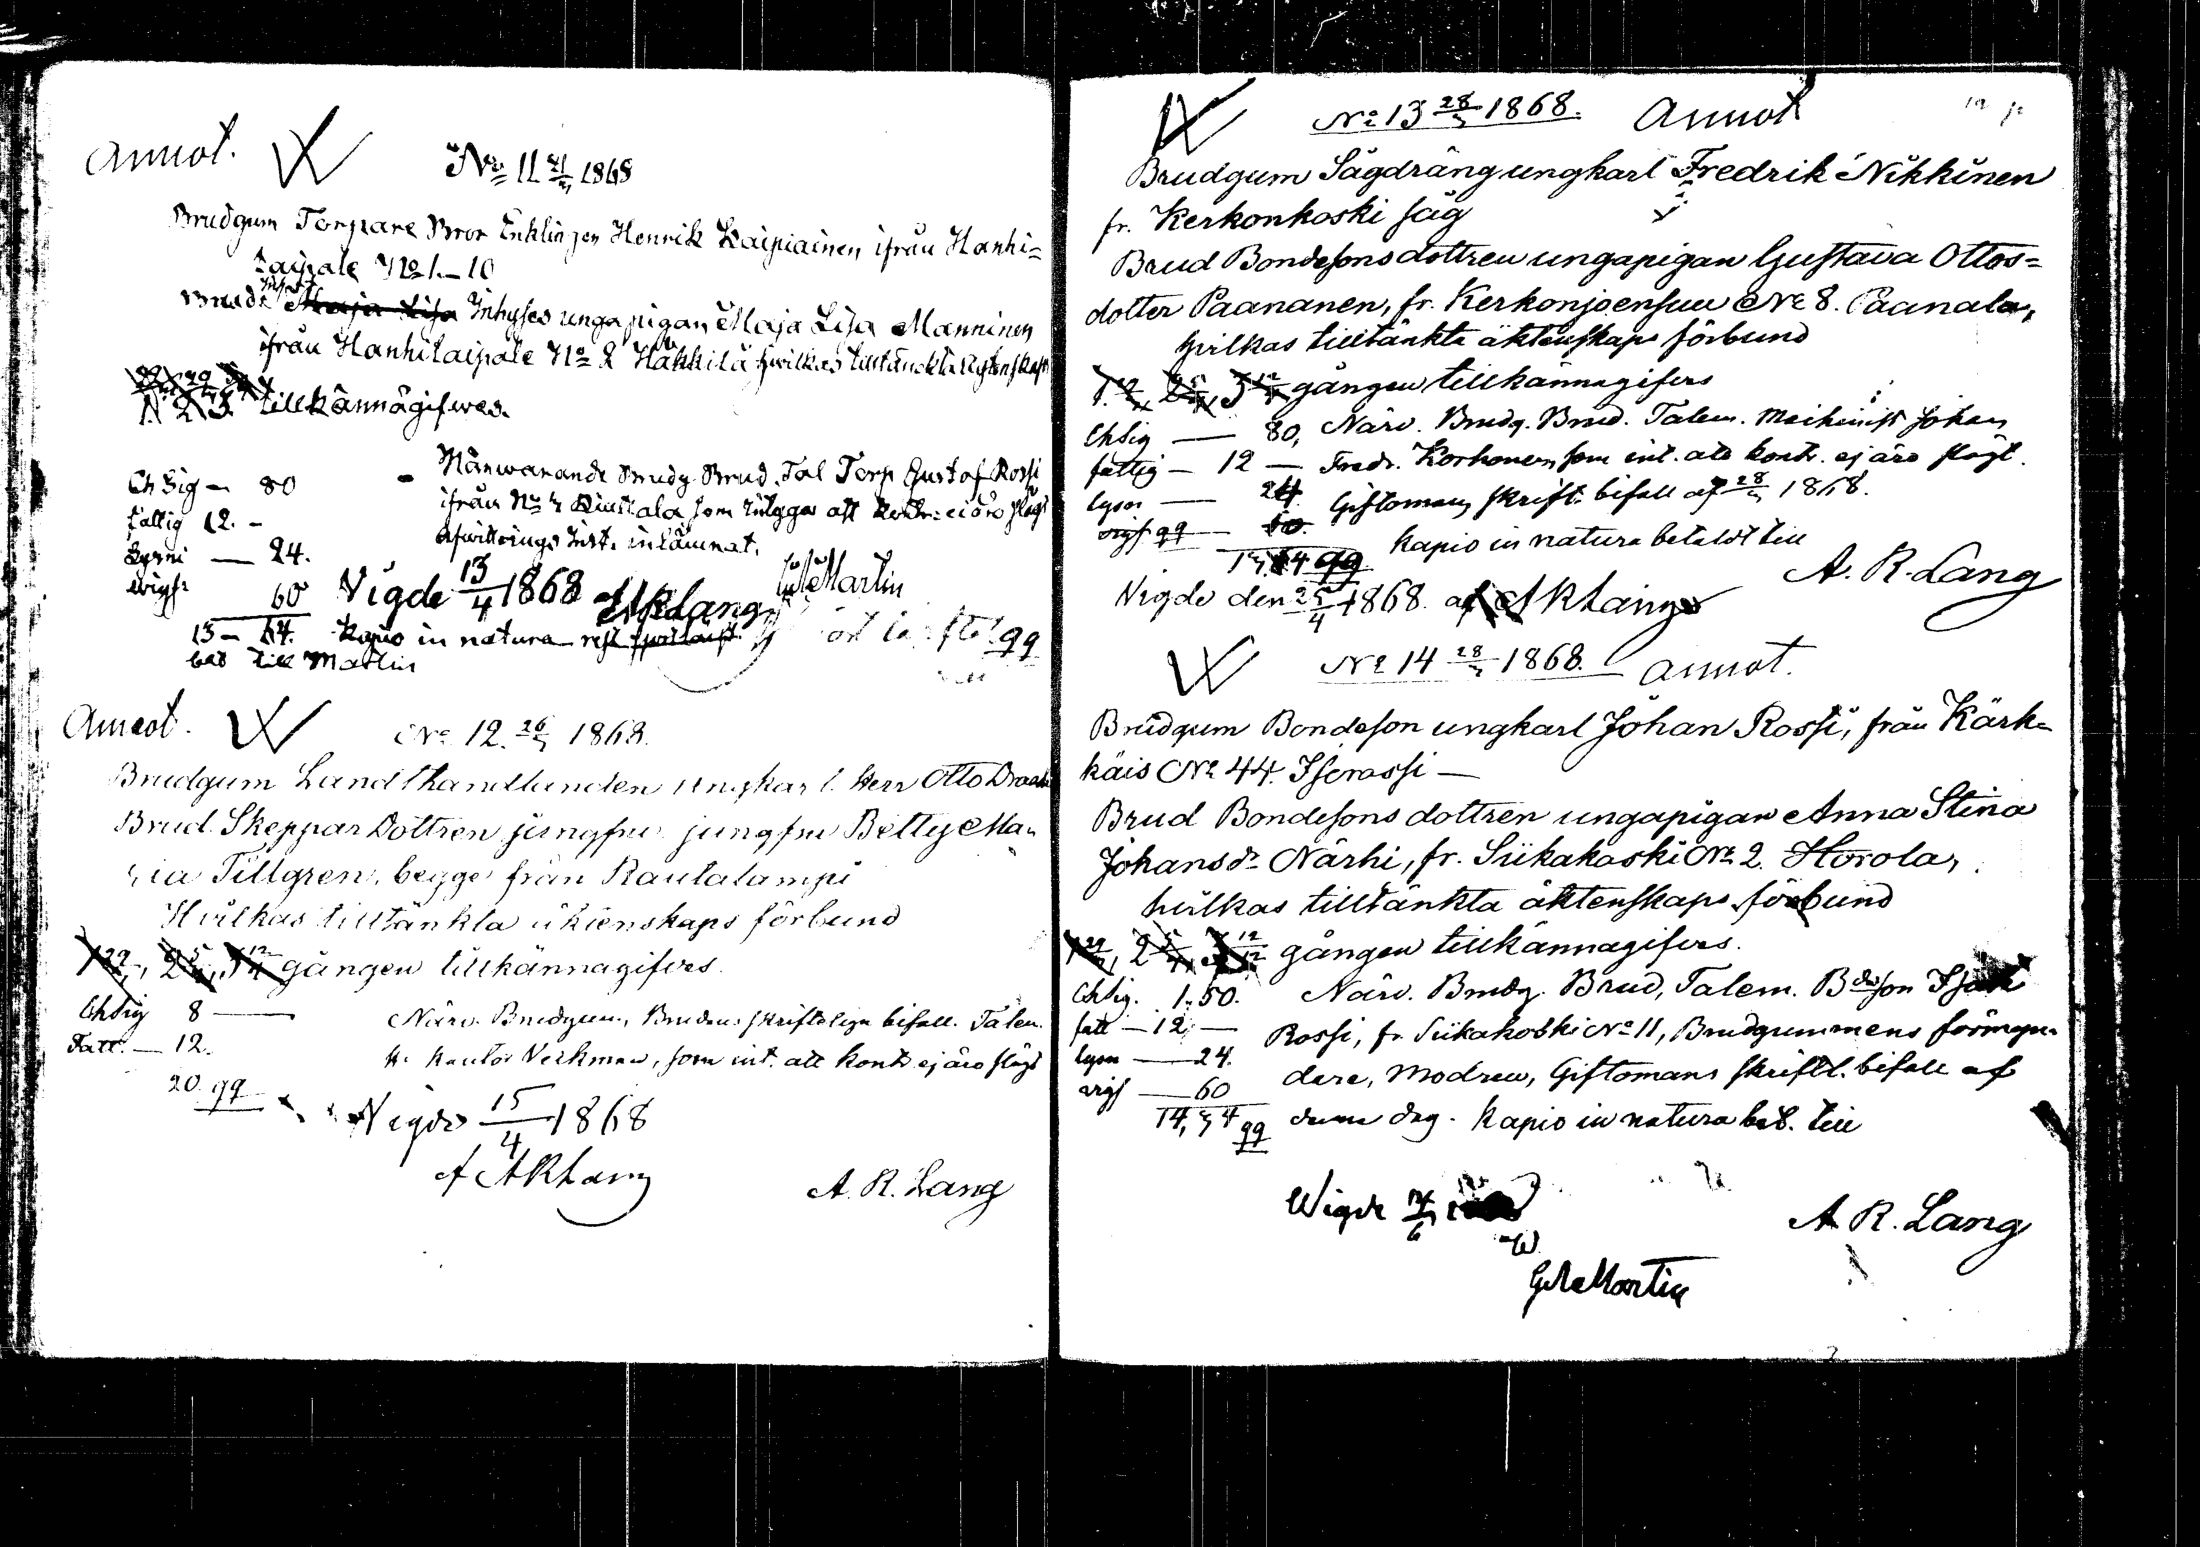 Annot.
No 11 21/3 1868
Brudgum Torpare Bror Enklingen Henrik Kaipiainen ifrån Hanhi=
taipale No 1.-10
Brud Maja Lisa Inhyses unga pigan Maja Lisa Manninen
ifrån Hanhitaipale No 2 Häkkilä hwilkas tilltänckta Ägtenskaps
1. 2. 3. tillkännagifwas.
Ch Sig - 80
fattig 12. -
Lysni - 24.
wigs: 60
13 - 64.
Närwarande Brudg. Brud. Tal Torp Gustaf Rossi
ifrån No 3 som tilägga att kontr: ei äro slägt
Afwittrings Inst. inlämnat.
G. Martin
Vigde 13/4 1868 af AR Lang
Kapio in natura
bet till Martin
99
Annot.
No 12. 26/3 1868.
Brudgum Landthandlanden ungkarl Herr Otto
Brud. Skeppar Dottren jungfru jungfru Betty Ma=
ria Tillgren, begge från Rautalampi
Hvilkas tilltänkta äktenskaps förbund
1 29/3, 2 5/4, 3 12/4 gången tillkännagifves.
Ch Sig 8 -
Fatt. - 12.
20. 99
Närv. Brudgum, Brudens skriftliga bifall. Talem.
Hr Kantor Verkman, som int. att kontr ej äro slägt
Vigde 15/4 1868
af AR Lang
A. R. Lang
No 13 28/3 1868. Annot
Brudgum Sågdräng ungkarl Fredrik Nikkinen
fr. Kerkonkoski såg
Brud Bondesonsdottren ungapigan Gustava Ottos=
dotter Paananen, fr. Kerkonjoensuu No 8. Paanala,
hvilkas tilltänkta äktenskaps förbund
1. 29/3, 2 5/4, 3 12/4 gången tillkännagifves
Chsig - 80,
fattig - 12 -
lysn - 24
vigs 99 - 60.
13,64 99
Närv. Brudg. Brud. Talem. Machinist Johan
Fredr. Korhonen, som int. att kontr. ej äro slägt.
Giftomans skriftl. bifall af 28/3 1868.
Kapio in natura betaldt till
A. R. Lang
Vigde den 25/4 1868. af AR Lang
No 14 28/3 1868. Annot.
Brudgum Bondeson ungkarl Johan Rossi, från Kärk=
käis No 44. Isorassi -
Brud Bondesons dottren ungapigan Anna Stina
Johansdr Närhi, fr. Siikakoski No 2. Horola,
hvilkas tilltänkta äktenskaps förbund
1 29/3, 2 5/4, 3 12/4 gången tillkännagifves.
Chsig. 1.50.
fatt - 12 -
lysn - 24.
vigs - 60
14,34 99
Närv. Brudg. Brud, Talem. Bdeson Isak
Rossi, fr. Siikakoski No 11, Brudgummens förmyn=
dare, Modren, Giftomans skriftl. bifall af
denna dag. Kapio in natura bet. till
Wigde
A. R. Lang
G. A. Martin